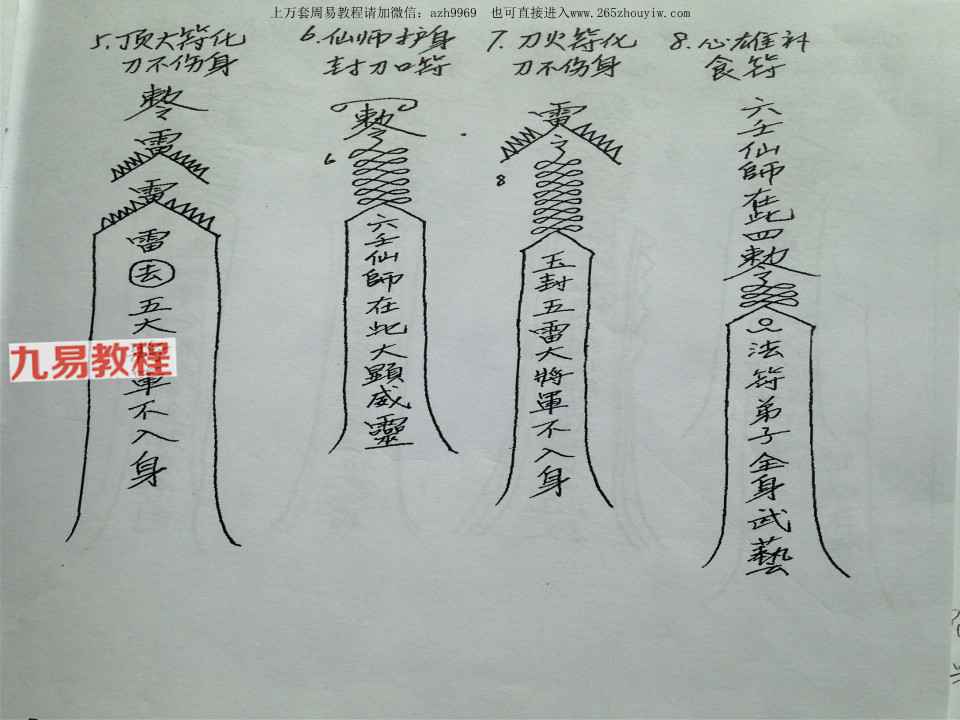 上万套周易教程请加微信：azh9969 也可直接进入www.265zhouyiw.com
5.顶大符化
刀不伤身
敕令
雷
雷
雷
去
五大
軍不入身
6.仙师护身
封刀口符
敕令
6
六壬仙師在此大顯威靈
7.刀火符化
刀不伤身
雷
令
8
玉封五雷大將軍不入身
8.心雄
食符
六壬仙師在此四敕令
法符弟子全身武藝
九易教程